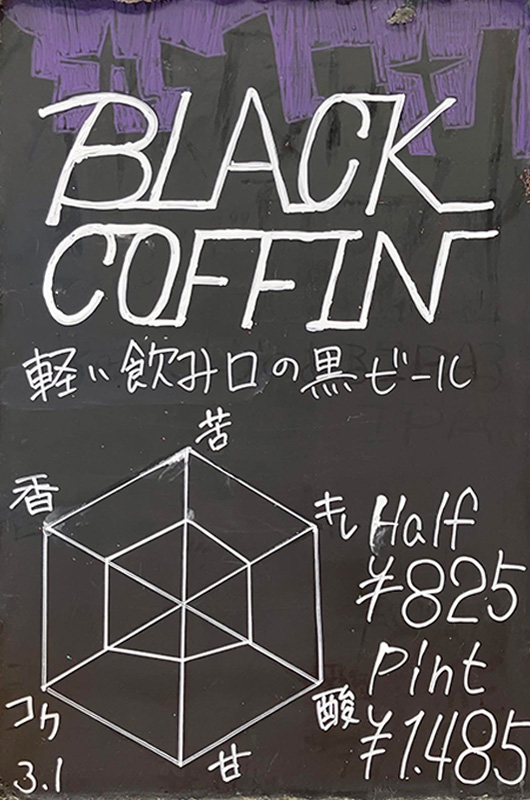 BLACK
COFFIN
軽い飲み口の黒ビール
苦
香
キレ
Half
¥825
Pint
¥1.485
酸
コク
甘
3.1